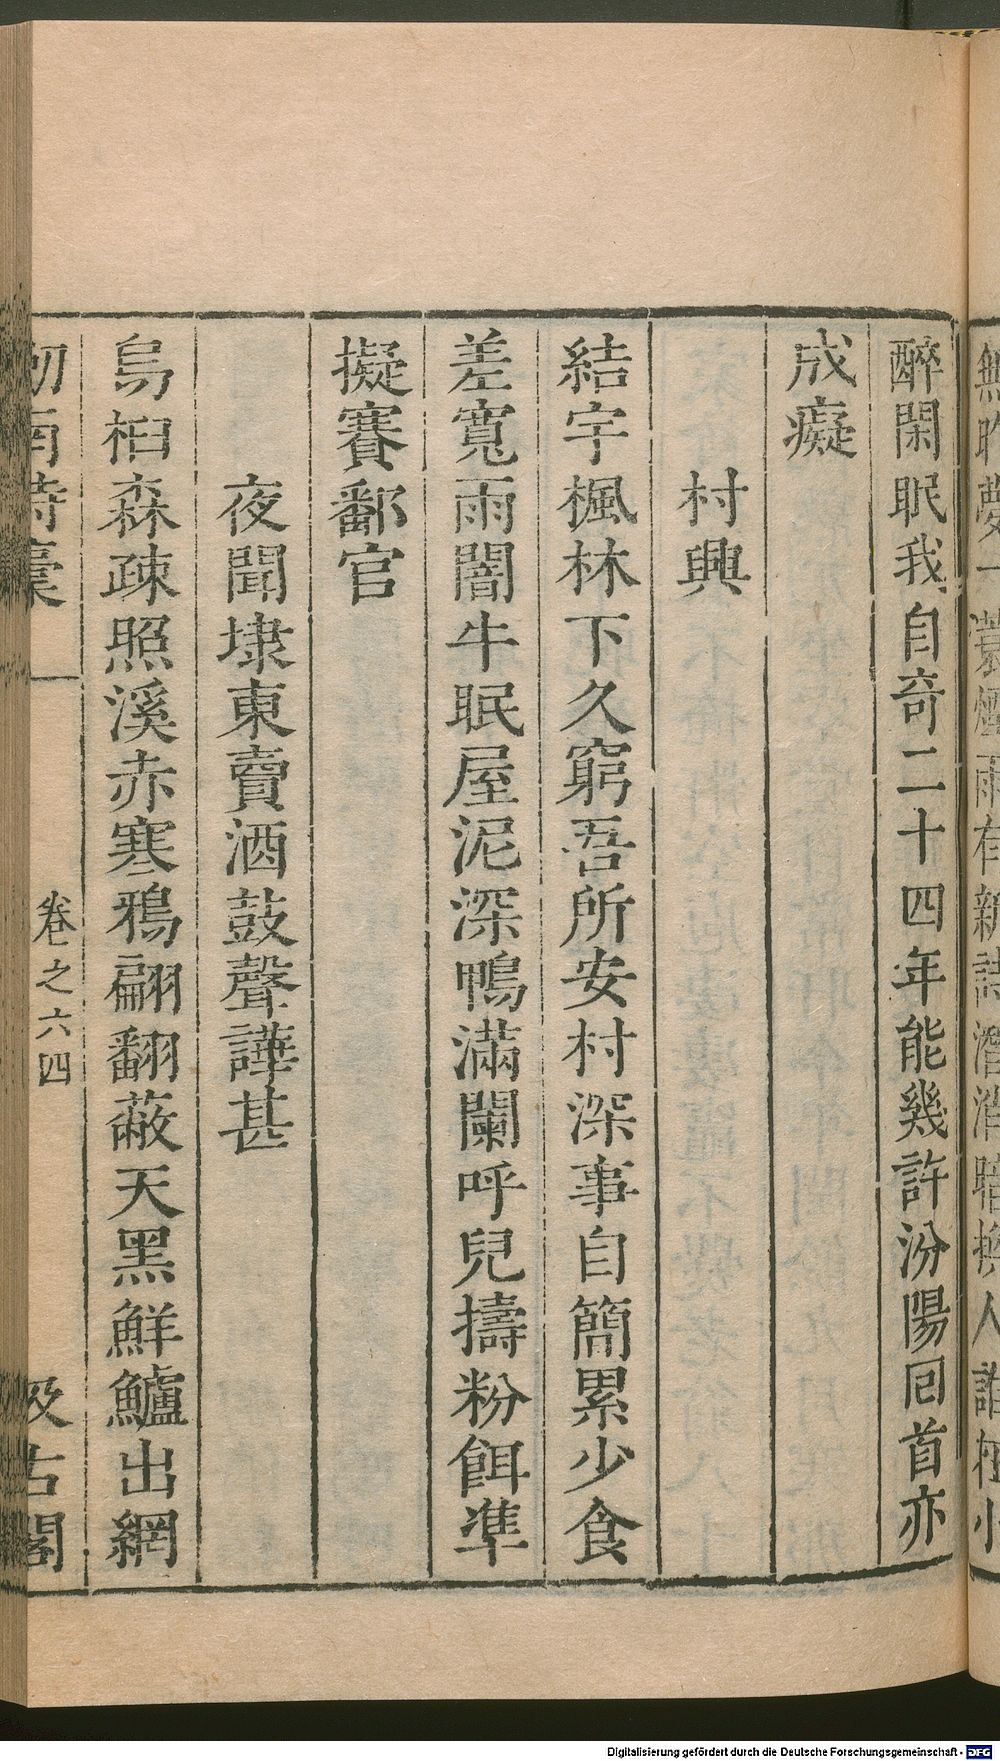 醉閑眠我自奇二十四年能幾許汾陽回首亦
成癡
村興
結宇楓林下久窮吾所安村深事自簡累少食
差寬雨闇牛眠屋泥深鴨滿闌呼兒擣粉餌準
擬賽鄱官
夜聞埭東賣酒鼓聲譁甚
烏桕森疎照溪赤寒鴉翩翻蔽天黑鮮鱸出網
劒南詩稾 卷之六四 汲古閣
Digitalisierung gefördert durch die Deutsche Forschungsgemeinschaft - DFG